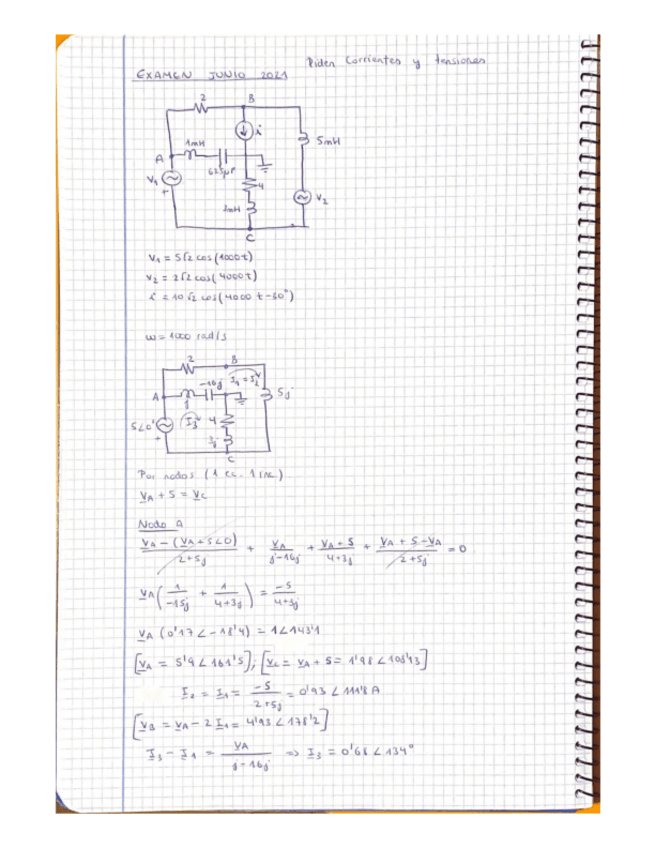 Piden Corrientes y tensiones
EXAMEN JUNIO 2021
2
B
i
5mH
1mH
A
625μF
V₁
+
4
3mH
V₂
C
V₁ = 5√2 cos(1000t)
V₂ = 2√2 cos(4000t)
i = 10√2 cos(4000t-30°)
ω = 1000 rad/s
2
B
-16j
I₁ = I₂
5j
A
j
5∠0°
I₃
4
+
3j
C
Por nodos (1 ec. 1 inc.)
V_A + 5 = V_C
Nodo A
(V_A - (V_A + 5∠0))/(2+5j) + V_A/(j-16j) + (V_A + 5)/(4+3j) + (V_A + 5 - V_A)/(2+5j) = 0
V_A (1/(-15j) + 1/(4+3j)) = -5/(4+3j)
V_A (0'17∠-18'4) = 1∠143'1
[V_A = 5'9∠161'5]; [V_C = V_A + 5 = 1'98∠108'13]
I₂ = I₁ = -5/(2+5j) = 0'93∠111'8 A
[V_B = V_A - 2 I₁ = 4'93∠178'2]
I₃ - I₁ = V_A/(j-16j) => I₃ = 0'68∠134°